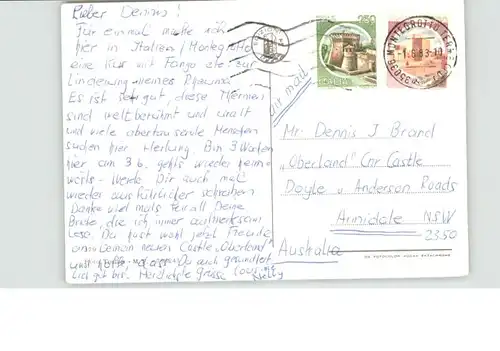 Lieber Dennis!
Für einmal mache ich
hier in Italien (Montegrotto)
eine Kur mit Fango etc. zur
Linderung meines Rheuma.
Es ist sehr gut, diese Thermen
sind weltberühmt und uralt
und viele abertausende Menschen
suchen hier Heilung. Bin 3 Wochen
hier am 3 6. geht's wieder heim-
wärts. Werde Dir auch mal
wieder ausführlicher schreiben
Danke vielmals für all Deine
Briefe, die ich immer aufmerksam
lese. Du hast wohl jetzt Freude
an Deinem neuen Castle „Oberland"
und hoffe dass Du auch gesundheitl.
Herzlichste Grüsse
Nelly
250
ITALIA
MONTEGROTTO TERME
-1.6.83-
air mail
Mr. Dennis J Brand
„Oberland" Cnr Castle
Doyle u Anderson Roads
Armidale NSW
2350
Australia